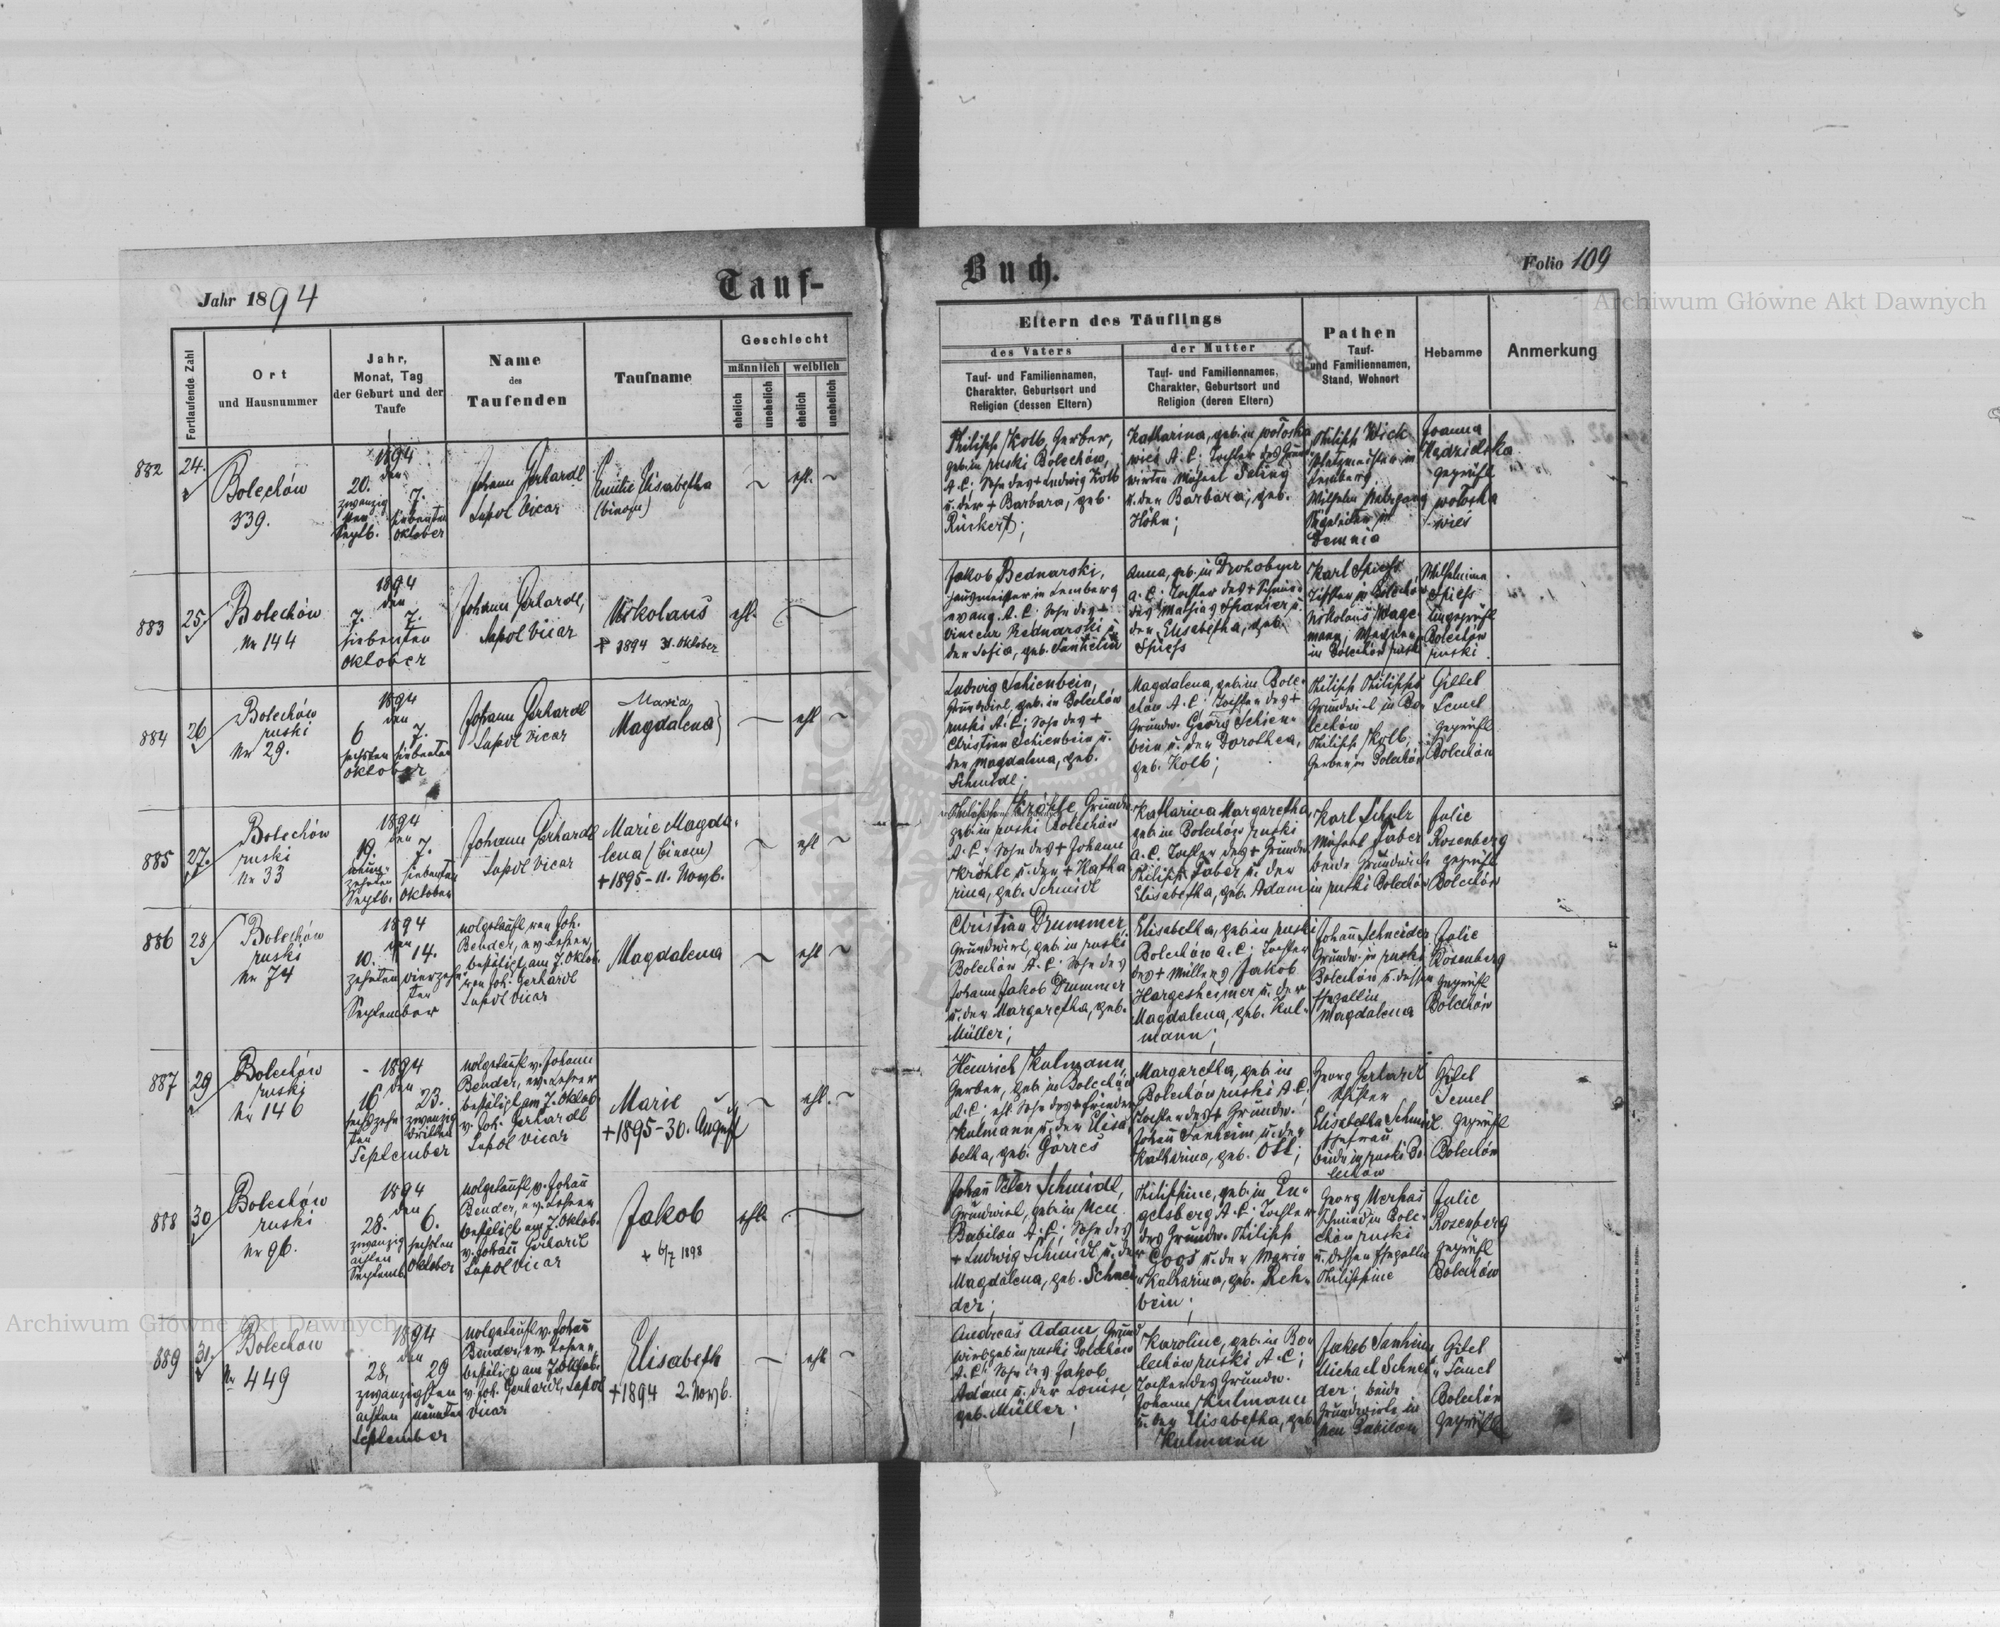 Jahr 1894
Tauf-
Buch.
Folio 109
Archiwum Główne Akt Dawnych
Fortlaufende Zahl
Ort
und Hausnummer
Jahr,
Monat, Tag
der Geburt und der
Taufe
Name
des
Taufenden
Taufname
Geschlecht
männlich
weiblich
ehelich
unehelich
ehelich
unehelich
Eltern des Täuflings
des Vaters
der Mutter
Tauf- und Familiennamen,
Charakter, Geburtsort und
Religion (dessen Eltern)
Tauf- und Familiennamen,
Charakter, Geburtsort und
Religion (deren Eltern)
Pathen
Tauf-
und Familiennamen,
Stand, Wohnort
Hebamme
Anmerkung
882
24.
Bolechów
339.
1894
den
20. 7.
zwanzig
sten siebenten
Septb. Oktober
Johann Gerhardt
Supol Vicar
Emilie Elisabetha
(binom)
ehl.
Philipp Kolb, Gerber,
geb. in ruski Bolechów,
A. C. Sohn des + Ludwig Kolb
u. der + Barbara, geb.
Rückert;
Katharina, geb. in wołoska
wieś A. C. Tochter des Grund
wirten Michael
u. der Barbara, geb.
Höhn;
Philipp Wick
Platzmeister in
Lemberg
Wilhelm
in
Demnia
Joanna
geprüft
wołoska
wieś
883
25.
Bolechów
Nr 144
1894
den
7. 7.
siebenten
Oktober
Johann Gerhardt,
Supol Vicar
Nikolaus
+ 1894 31. Oktober
ehl.
Jakob Bednarski,
in Lemberg
evang. A. C. Sohn des +
Vincenz Bednarski u.
der Sofia, geb.
Anna, geb. in Drohobycz
A. C. Tochter des +
des Mathias Spanier u.
der Elisabetha, geb.
Spiess
Karl Spiess
Tischler in Bolechów
Nikolaus Wage-
mann,
in Bolechów ruski
Wilhelmine
Spiess
ungeprüft
Bolechów
ruski
884
26
Bolechów
ruski
Nr 29.
1894
den
6 7.
sechsten siebenten
Oktober
Johann Gerhardt
Supol Vicar
Maria
Magdalena
ehl
Ludwig Schienbein,
Grundwirt, geb. in Bolechów
ruski A. C. Sohn des +
Christian Schienbein u.
der Magdalena, geb.
Schmidt;
Magdalena, geb. in Bole-
chów A. C. Tochter des +
Grundw. Georg Schien-
bein u. der Dorothea,
geb. Kolb;
Philipp Philipps
Grundwirt in Bo-
lechów
Philipp Kolb,
Gerber in Bolechów
Gittel
Semel
geprüft
Bolechów
885
27.
Bolechów
ruski
Nr 33
1894
den
19. 7.
neun-
zehnten siebenten
Septb. Oktober
Johann Gerhardt
Supol Vicar
Marie Magda-
lena (binom)
+ 1895 - 11. Novb.
ehl
Kröhle, Grundw.
geb. in ruski Bolechów
A. C. Sohn des + Johann
Kröhle u. der + Katha
rina, geb. Schmidt
Katharina Margaretha,
geb. in Bolechów ruski
A. C. Tochter des + Grundw.
Philipp Faber u. der
Elisabetha, geb. Adam
Karl Schulz
Michael Faber
beide Grundwirte
in ruski Bolechów
Julie
Rosenberg
geprüft
Bolechów
886
28
Bolechów
ruski
Nr 74
1894
den
10. 14.
zehnten vierzehn
ten
September
notgetauft von Joh.
Bender, ev. Lehrer,
bestätigt am 7. Oktob.
von Joh. Gerhardt
Supol Vicar
Magdalena
ehl
Christian Drummer,
Grundwirt, geb. in ruski
Bolechów A. C. Sohn des
Johann Jakob Drummer
u. der Margaretha, geb.
Müller;
Elisabetha, geb. in ruski
Bolechów A. C. Tochter
des + Müllers Jakob
Hargesheimer u. der
Magdalena, geb. Kul-
mann;
Johann Schneider
Grundw. in ruski
Bolechów u. dessen
Ehegattin
Magdalena
Julie
Rosenberg
geprüft
Bolechów
887
29
Bolechów
ruski
Nr 146
1894
den
16 23.
sechszehn zwanzig
ten dritten
September
notgetauft v. Johann
Bender, ev. Lehrer
bestätigt am 7. Oktob.
v. Joh. Gerhardt
Supol Vicar
Marie
+ 1895 - 30. August
ehl.
Heinrich Kulmann,
Gerber, geb. in Bolechów
A. C. ehl. Sohn des + Frieder.
Kulmann u. der Elisa-
betha, geb. Görres
Margaretha, geb. in
Bolechów ruski A. C.
Tochter des + Grundw.
Johann u. der
Katharina, geb. Ott;
Georg Gerhardt
Elisabetha Schmidt,
Ehefrau
beide in ruski Bo-
lechów
Gitel
Semel
geprüft
Bolechów
888
30
Bolechów
ruski
Nr 96.
1894
den
28. 6.
zwanzig sechsten
achten
Septemb. Oktober
notgetauft v. Johann
Bender, ev. Lehrer
bestätigt am 7. Oktob.
v. Johann Gerhardt
Supol Vicar
Jakob
+ 6/7 1898
ehl.
Johann Peter Schmidt,
Grundwirt, geb. in Neu
Babilon A. C., Sohn des
+ Ludwig Schmidt u. der
Magdalena, geb. Schnei-
der;
Philippine, geb. in En-
gelsberg A. C. Tochter
des Grundw. Philipp
Coos u. der Maria
Katharina, geb. Reh-
bein;
Georg
Schmied in Bole-
chów ruski
u. dessen Ehegattin
Philippine
Julie
Rosenberg
geprüft
Bolechów
889
31.
Bolechów
Nr 449
1894
den
28. 29
zwanzigsten
achten neunten
September
notgetauft v. Johann
Bender, ev. Lehrer,
bestätigt am 7. Oktob.
v. Joh. Gerhardt, Supol
Vicar
Elisabeth
+ 1894 2. Novb.
ehl.
Andreas Adam, Grund
wirt geb. in ruski Bolechów
A. C. Sohn des Jakob
Adam u. der Louise,
geb. Müller;
Karoline, geb. in Bo-
lechów ruski A. C;
Tochter des Grundw.
Johann Kulmann
u. der Elisabetha, geb.
Kulmann
Jakob
Michael Schnei-
der; beide
Grundwirte in
Neu Babilon
Gitel
Semel
Bolechów
geprüft
Archiwum Główne Akt Dawnych